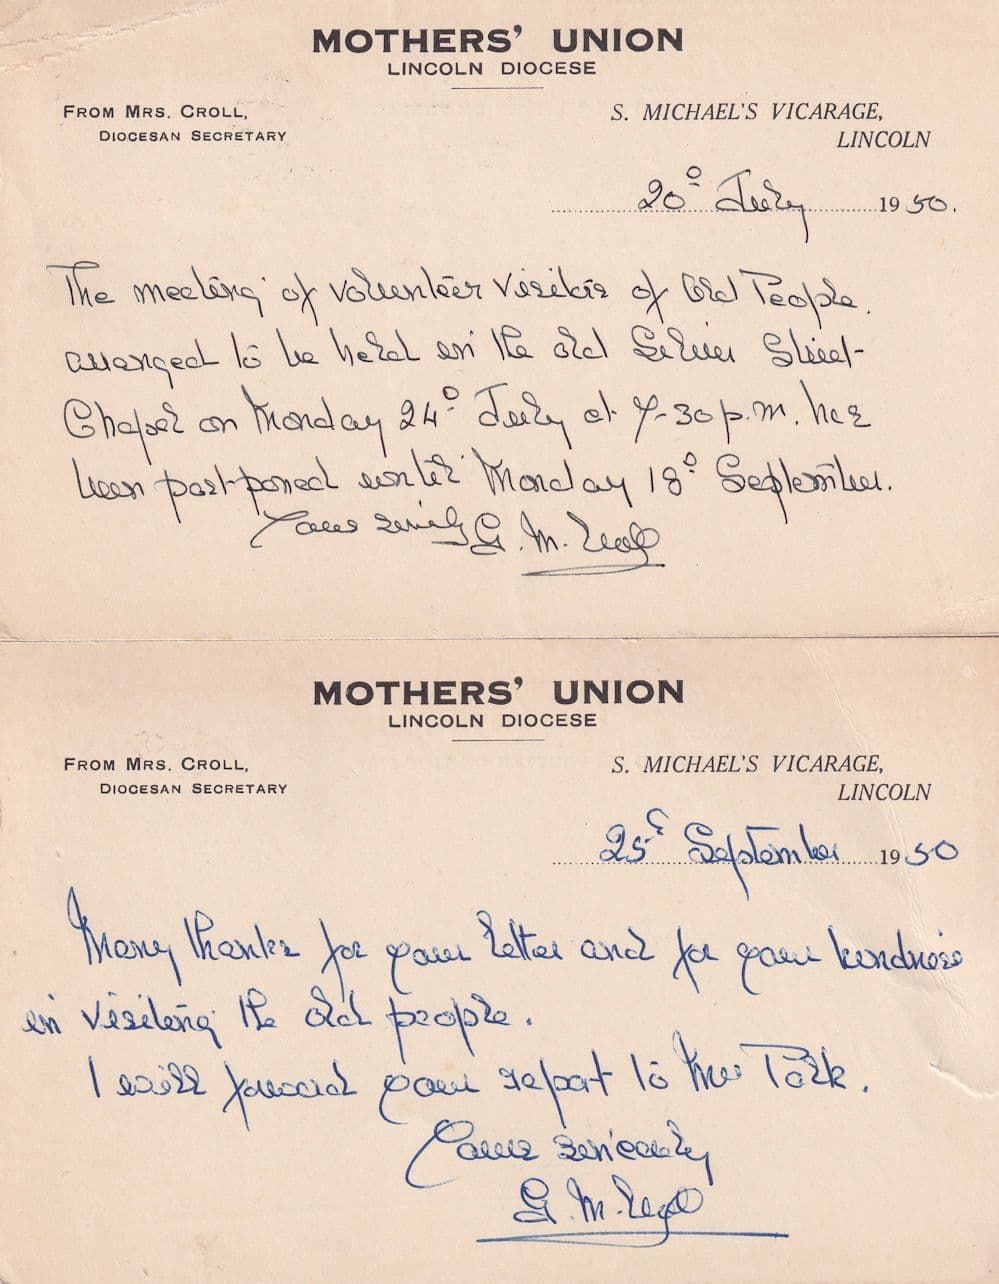 MOTHERS' UNION
LINCOLN DIOCESE
FROM MRS. CROLL,
DIOCESAN SECRETARY
S. MICHAEL'S VICARAGE,
LINCOLN
20º July 1950.
The meeting of volunteer visitors of Old People
arranged to be held in the old Silver Street
Chapel on Monday 24º July at 7-30 p.m. has
been postponed until Monday 18º September.
Yours sincerely G. M.
MOTHERS' UNION
LINCOLN DIOCESE
FROM MRS. CROLL,
DIOCESAN SECRETARY
S. MICHAEL'S VICARAGE,
LINCOLN
25 September 1950
Many thanks for your letter and for your kindness
in visiting the old people.
I will forward your report to Mrs
Yours sincerely
G. M.